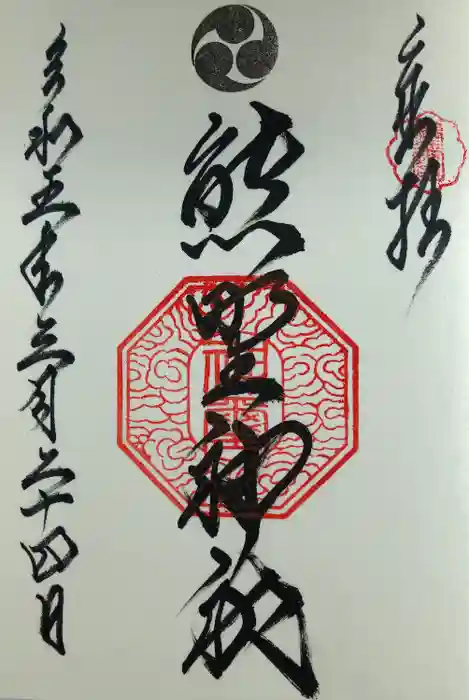 奉拝
熊野神社
令和五年三月二十四日